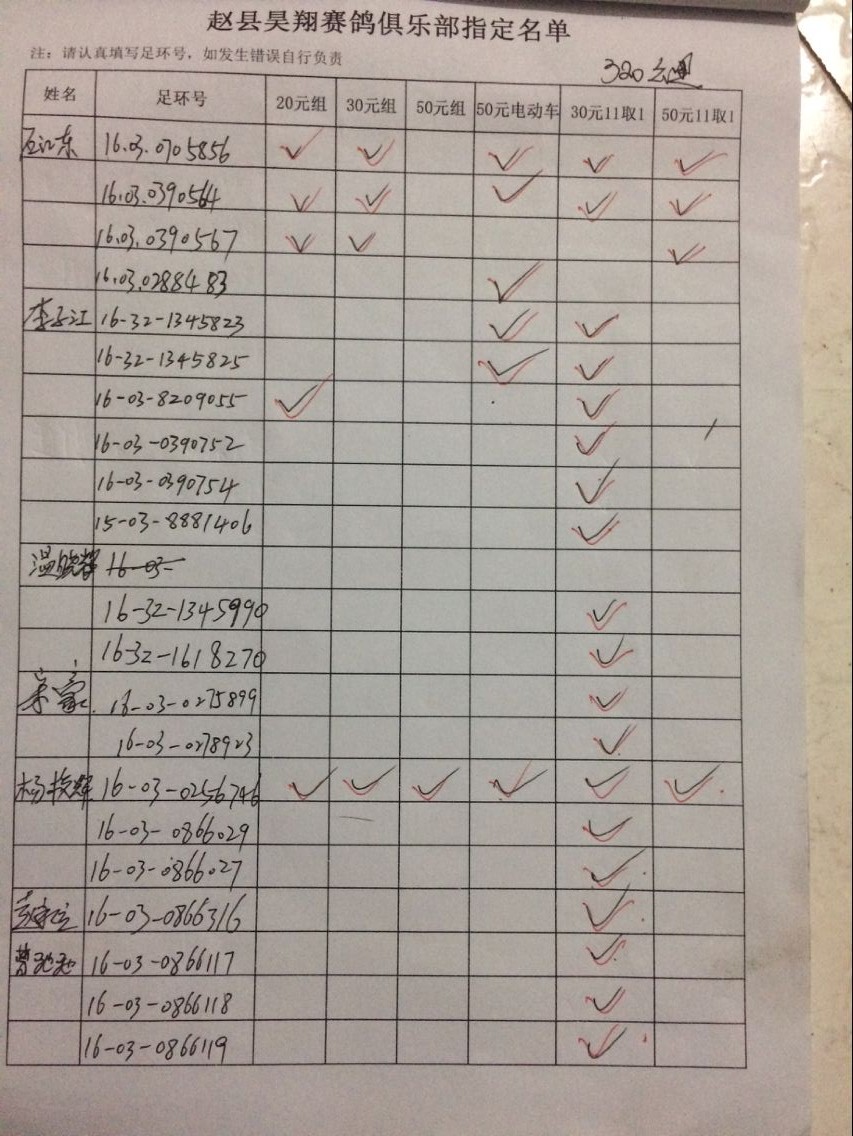 赵县昊翔赛鸽俱乐部指定名单
注：请认真填写足环号，如发生错误自行负责
320公里
姓名 足环号 20元组 30元组 50元组 50元电动车 30元11取1 50元11取1
石江东 16.03.0705856 ✓ ✓ ✓ ✓ ✓
16.03.0390564 ✓ ✓ ✓ ✓ ✓
16.03.0390567 ✓ ✓ ✓
16.03.0288483 ✓
李子江 16-32-1345823 ✓ ✓
16-32-1345825 ✓ ✓
16-03-8209055 ✓ ✓
16-03-0390752 ✓
16-03-0390754 ✓
15-03-8881406 ✓
温晓辉 16-03-
16-32-1345990 ✓
16-32-1618270 ✓
16-03-0275899 ✓
16-03-0278923 ✓
杨 辉 16-03-0256746 ✓ ✓ ✓ ✓ ✓ ✓
16-03-0866029 ✓
16-03-0866027 ✓
16-03-0866316 ✓
曹 16-03-0866117 ✓
16-03-0866118 ✓
16-03-0866119 ✓